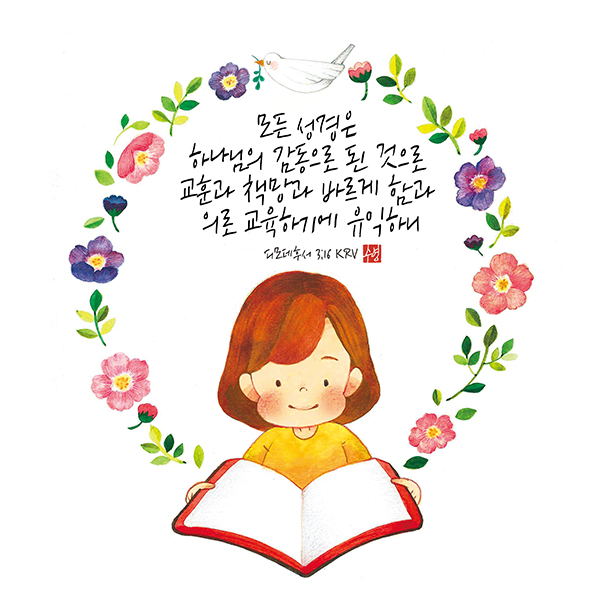 모든 성경은
하나님의 감동으로 된 것으로
교훈과 책망과 바르게 함과
의로 교육하기에 유익하니
디모데후서 3:16 KRV